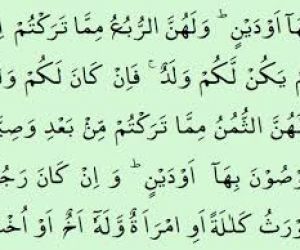 هَاۤ اَوْدَيْنٍ ؕ وَلَهُنَّ الرُّبُعُ مِمَّا تَرَكْتُمْ
يَكُنْ لَّكُمْ وَلَدٌ ۚ فَاِنْ كَانَ لَكُمْ
هُنَّ الثُّمُنُ مِمَّا تَرَكْتُمْ مِّنْۢ بَعْدِ وَصِيَّ
صُوْنَ بِهَاۤ اَوْدَيْنٍ ؕ وَ اِنْ كَانَ رَجُ
وْرَثُ كَلٰلَةً اَوِ امْرَاَةٌ وَّلَهٗۤ اَخٌ اَوْ اُخْ